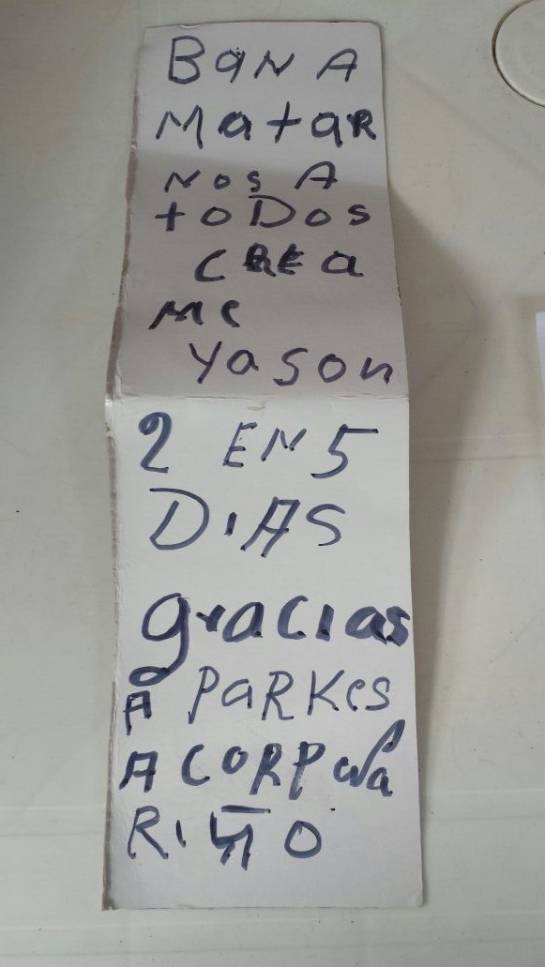 BaNA
MataR
NOS A
toDos
CREa
Me
Yason
2 EN 5
DiAS
gracias
A PaRKes
A CORP